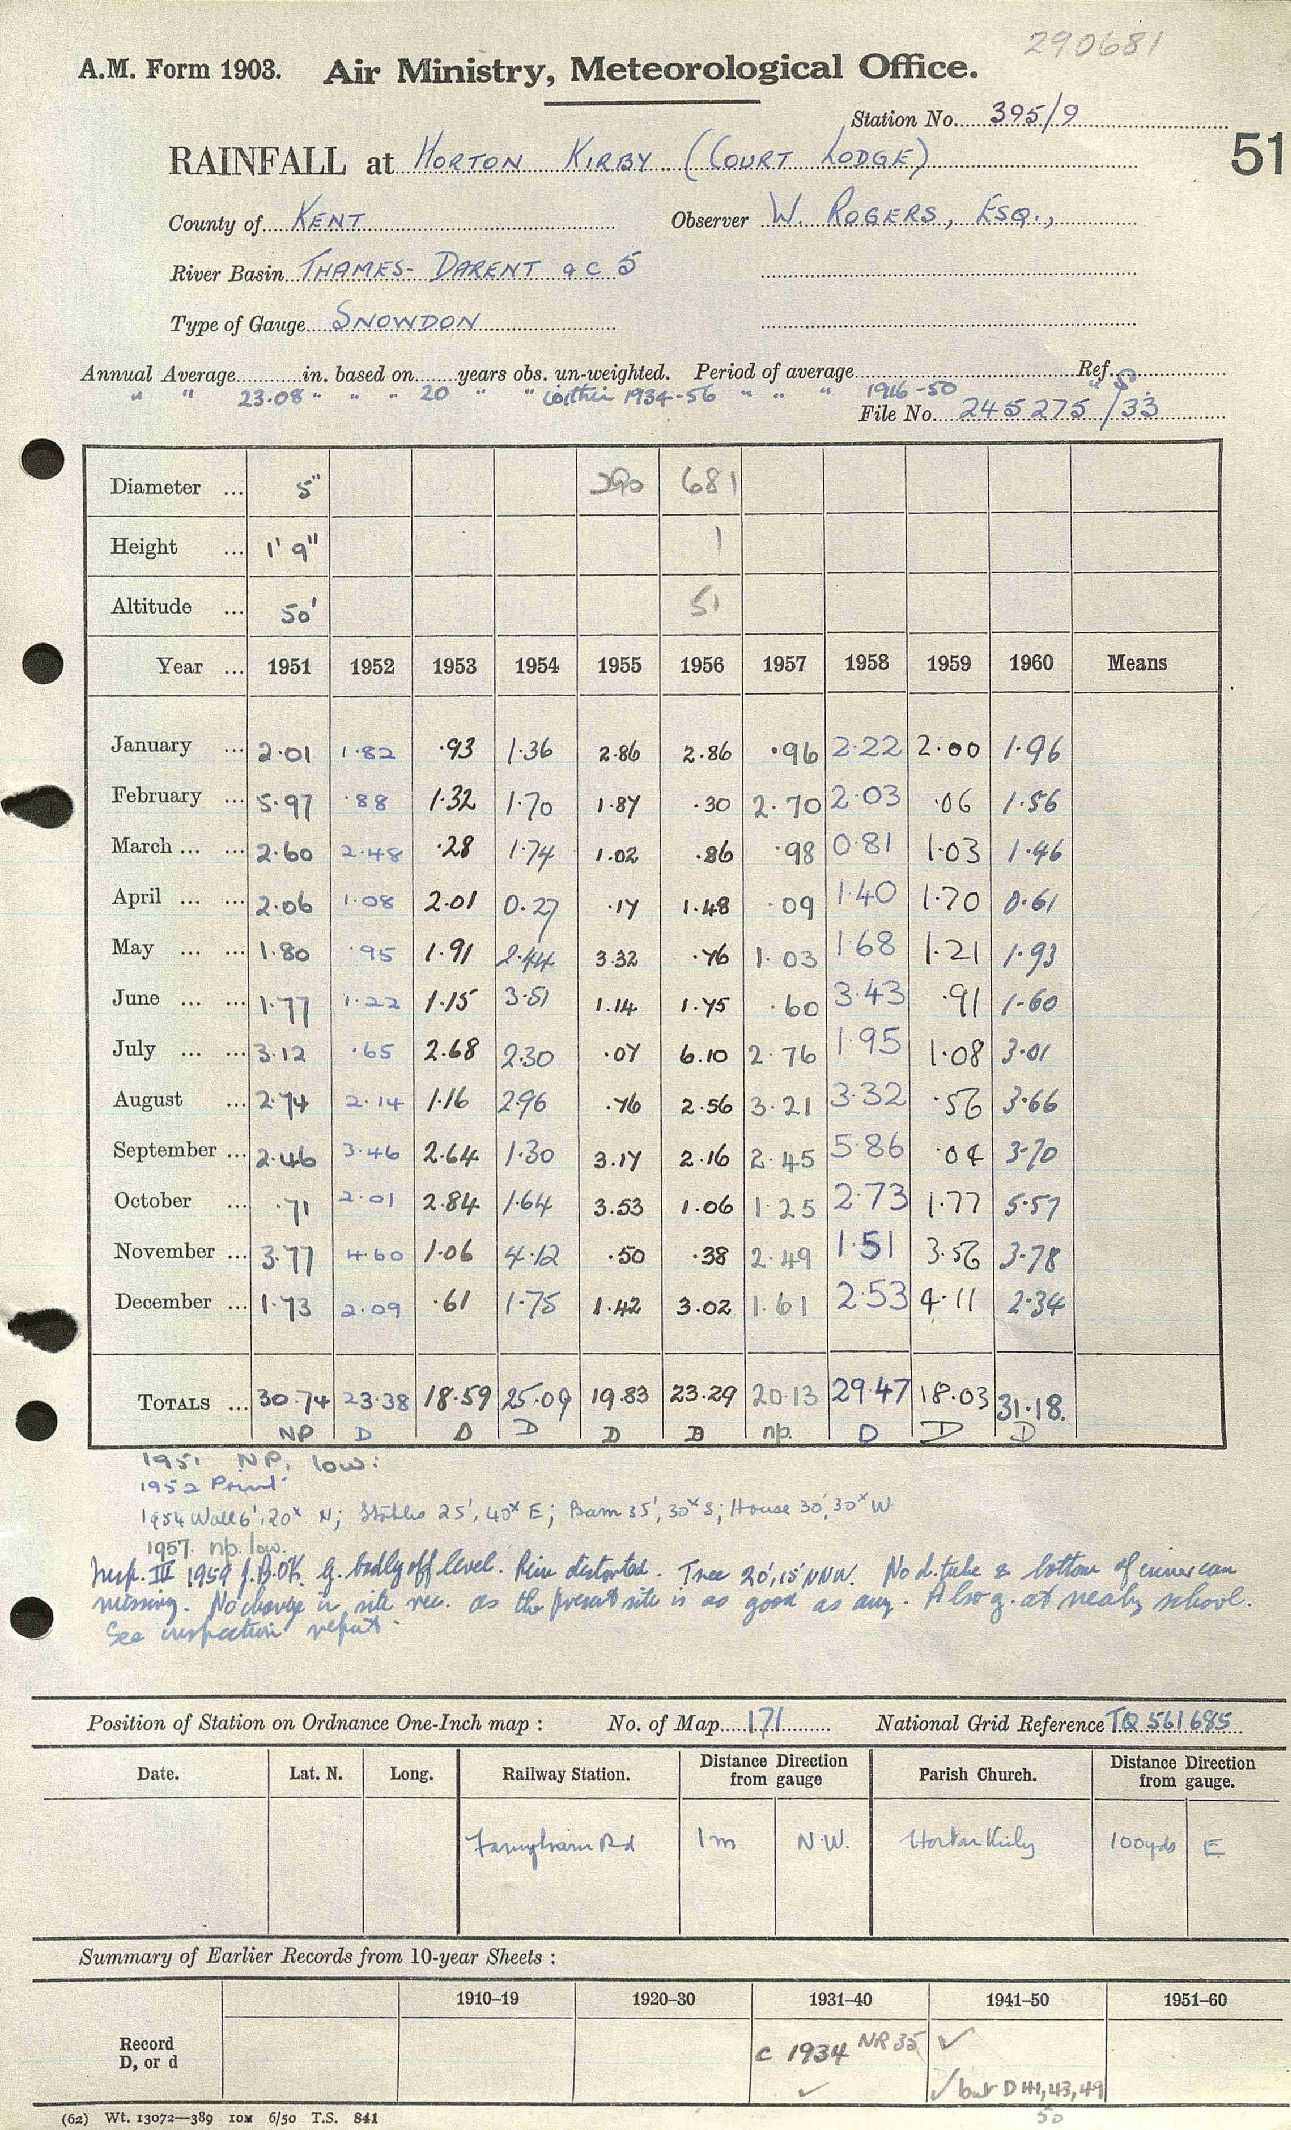 290681
A.M. Form 1903. Air Ministry, Meteorological Office.
Station No. 395/9
51
RAINFALL at HORTON KIRBY (COURT LODGE)
County of KENT Observer W. ROGERS, ESQ.,
River Basin THAMES- DARENT a c 5
Type of Gauge SNOWDON
Annual Average in. based on years obs. un-weighted. Period of average Ref.
" " 23.08 " " " 20 " " within 1934-56 " " " 1916-50
File No. 245275/S.33
Diameter ... 5" 290 681
Height ... 1' 9" 1
Altitude ... 50' 51
Year ... 1951 1952 1953 1954 1955 1956 1957 1958 1959 1960 Means
January ... 2.01 1.82 .93 1.36 2.86 2.86 .96 2.22 2.00 1.96
February ... 5.97 .88 1.32 1.70 1.87 .30 2.70 2.03 .06 1.56
March ... ... 2.60 2.48 .28 1.74 1.02 .86 .98 0.81 1.03 1.46
April ... ... 2.06 1.08 2.01 0.27 .17 1.48 .09 1.40 1.70 0.61
May ... ... 1.80 .95 1.91 2.44 3.32 .76 1.03 1.68 1.21 1.93
June ... ... 1.77 1.22 1.15 3.51 1.14 1.75 .60 3.43 .91 1.60
July ... ... 3.12 .65 2.68 2.30 .07 6.10 2.76 1.95 1.08 3.01
August ... 2.74 2.14 1.16 2.96 .76 2.56 3.21 3.32 .56 3.66
September ... 2.46 3.46 2.64 1.30 3.17 2.16 2.45 5.86 .04 3.70
October ... .71 2.01 2.84 1.64 3.53 1.06 1.25 2.73 1.77 5.57
November ... 3.77 4.60 1.06 4.12 .50 .38 2.49 1.51 3.56 3.78
December ... 1.73 2.09 .61 1.75 1.42 3.02 1.61 2.53 4.11 2.34
TOTALS ... 30.74 23.38 18.59 25.09 19.83 23.29 20.13 29.47 18.03 31.18.
NP D D D D D np. D D D
1951 NP. low:
1952 Print
1954 Wall 6', 20ˣ N; Stables 25', 40ˣ E; Barn 35', 30ˣ S; House 30', 30ˣ W
1957. np. low.
Insp. III 1959 J.B. OK. G. badly off level. Rim distorted. Tree 20', 15' NNW. No d. tube & bottom of inner can
missing. No change in site rec. as the present site is as good as any. Also g. at nearby school.
See inspection report.
Position of Station on Ordnance One-Inch map : No. of Map 171 National Grid Reference TQ 561685
Date. Lat. N. Long. Railway Station. Distance Direction from gauge Parish Church. Distance Direction from gauge.
Farningham Rd 1m N.W. Horton Kirby 100yds E
Summary of Earlier Records from 10-year Sheets :
1910–19 1920–30 1931–40 1941–50 1951–60
Record D, or d c 1934 NR 35 ✓
✓ ✓ but D 41, 43, 49
50
(62) Wt. 13072—389 10M 6/50 T.S. 841